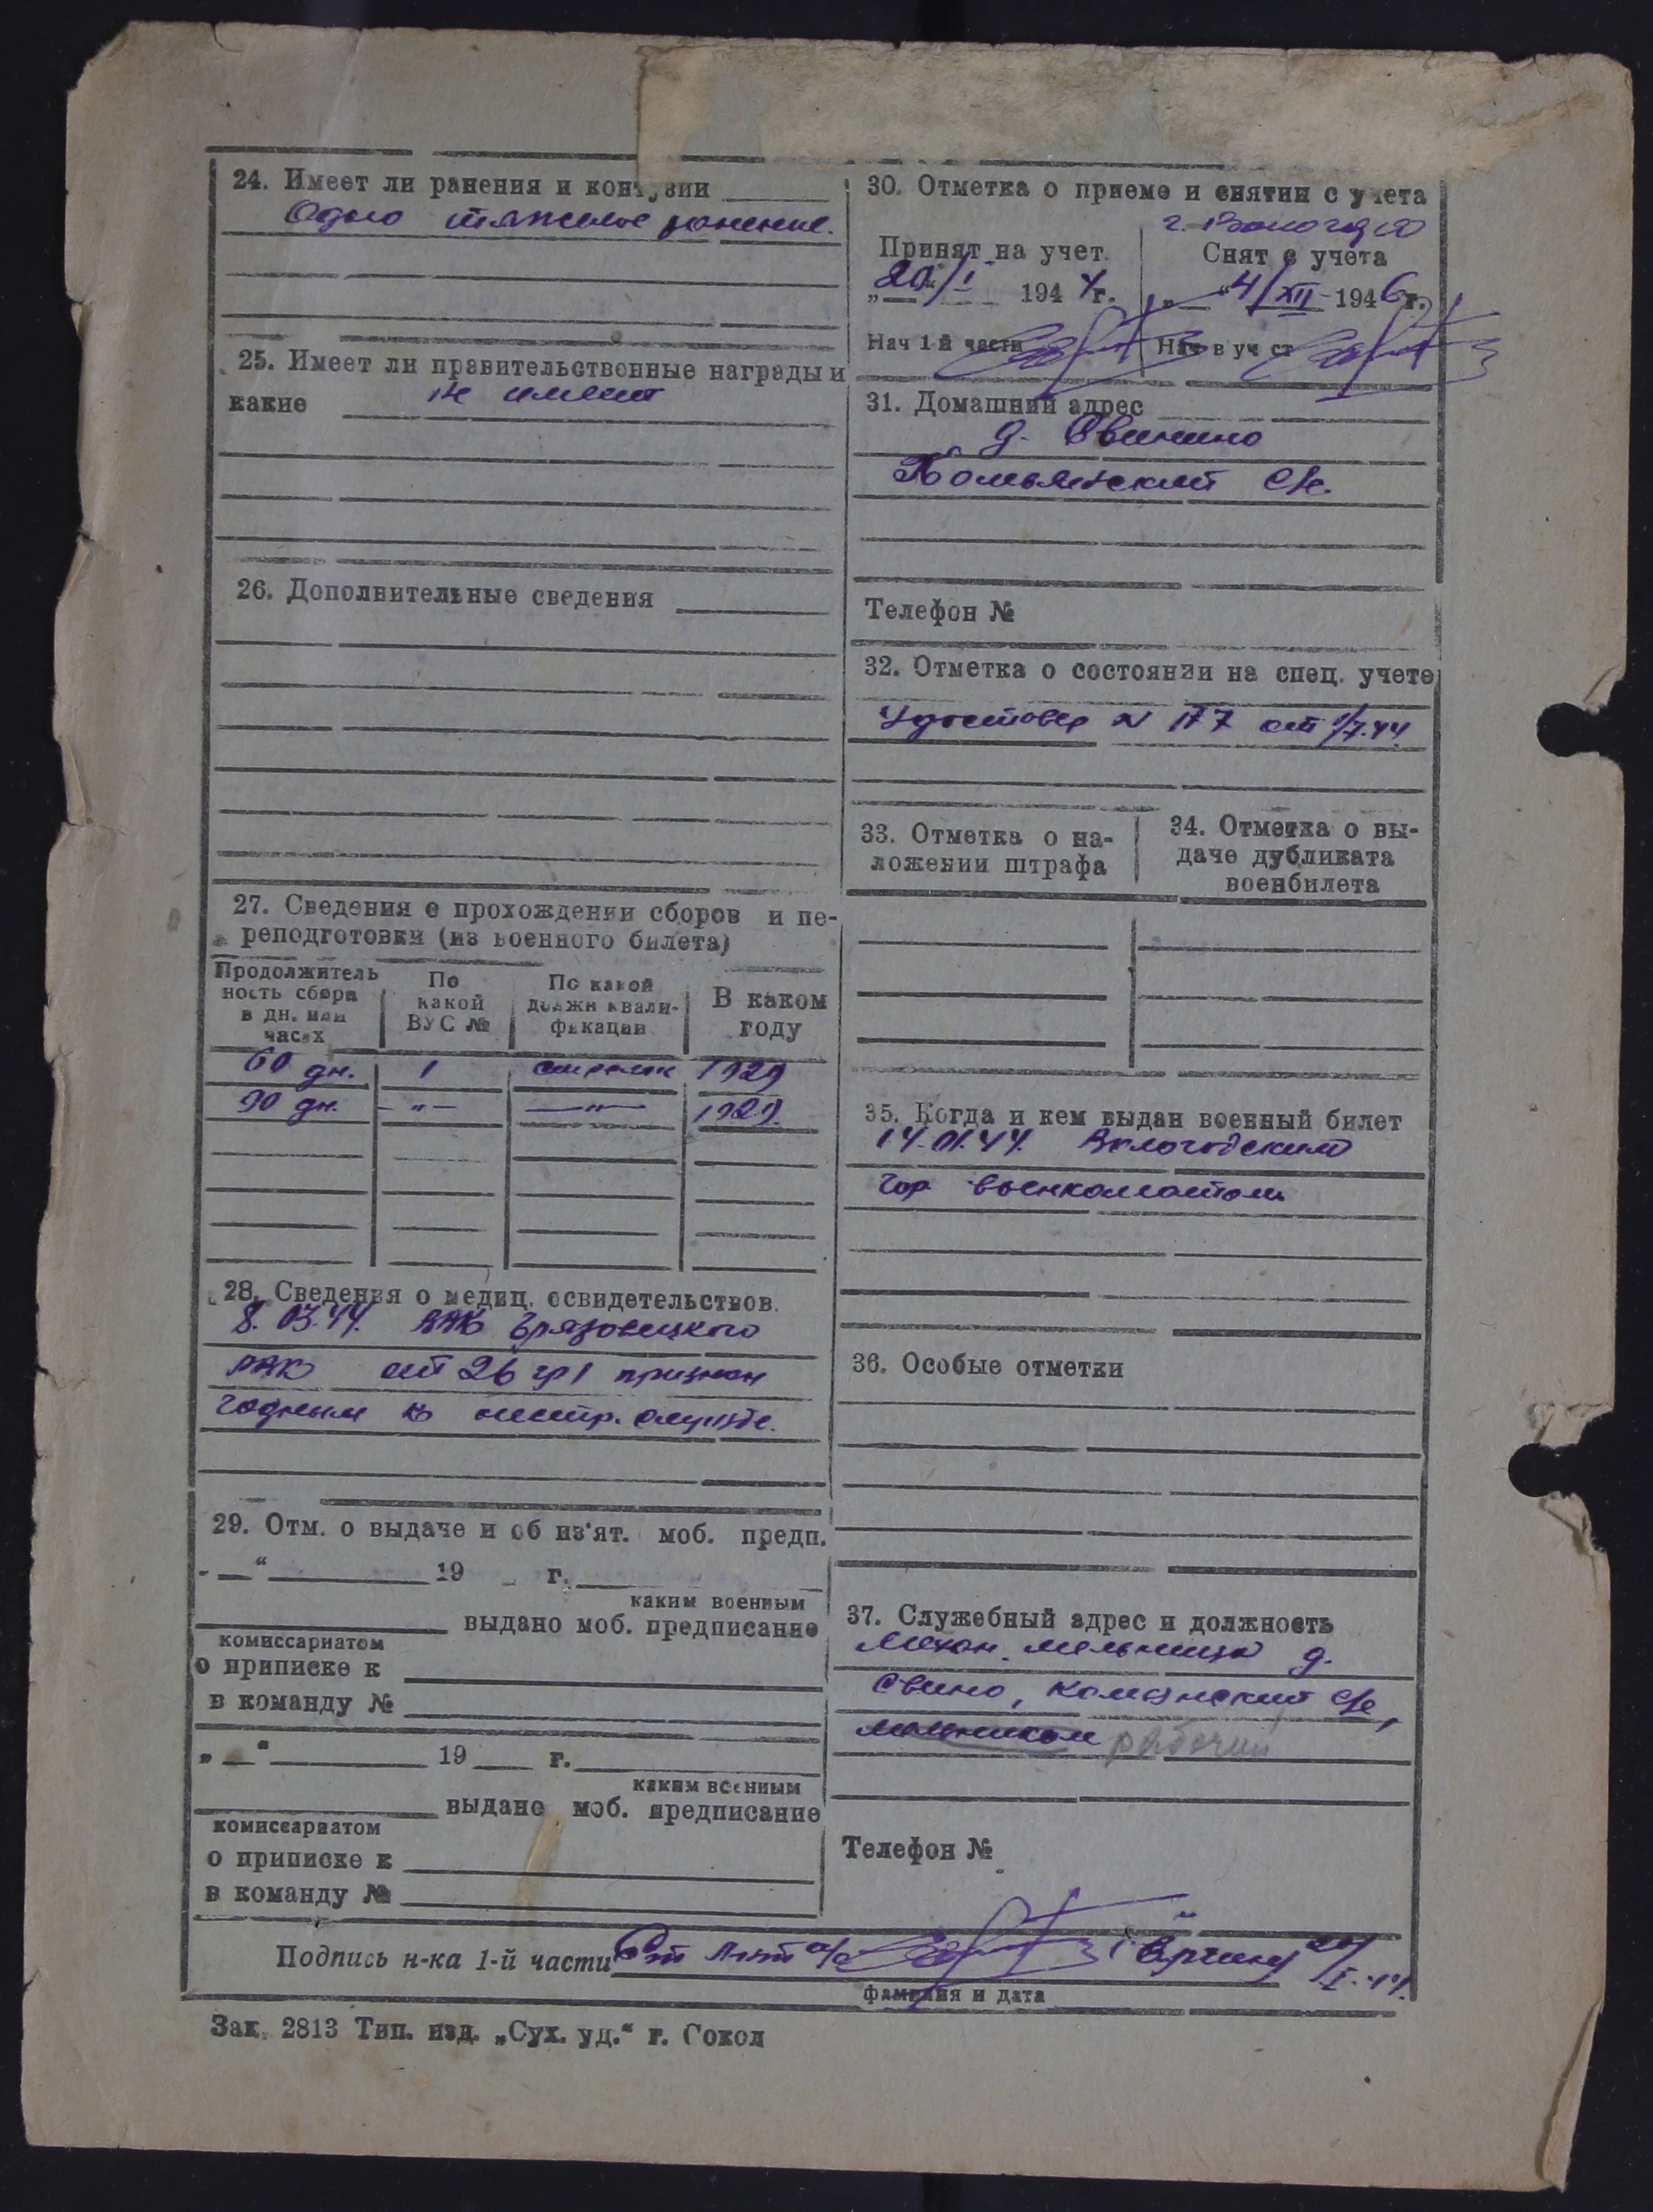 24. Имеет ли ранения и контузии
Одно тяжелое ранение.
25. Имеет ли правительственные награды и
какие не имеет
26. Дополнительные сведения
27. Сведения о прохождении сборов и пе-
реподготовки (из военного билета)
Продолжитель
ность сбора
в дн. или
часах
По
какой
ВУС №
По какой
должн квали-
фикации
В каком
году
60 дн. 1 стрелок 1929
90 дн. -"- -"- 1929.
28. Сведения о медиц. освидетельствов.
8. 03.44. Грязовецкого
РВК ст 26 гр 1 признан
годным к нестр. службе.
29. Отм. о выдаче и об из'ят. моб. предп.
"—" 19 г.
каким военным
выдано моб. предписание
комиссариатом
о приписке к
в команду №
„—" 19 г.
каким военным
выдано моб. предписание
комиссариатом
о приписке к
в команду №
30. Отметка о приеме и снятии с учета
г. Вологда
Принят на учет.
20/I 1944г.
Нач 1-й части
Снят с учета
4/XII 1946г.
Нач в уч ст
31. Домашний адрес
д. Свинино
Телефон №
32. Отметка о состоянии на спец. учете
Удостовер N 177 от
33. Отметка о на-
ложении штрафа
34. Отметка о вы-
даче дубликата
военбилета
35. Когда и кем выдан военный билет
14.01.44. Вологодским
гор военкоматом
36. Особые отметки
37. Служебный адрес и должность
Мехон. мельница д.
Свино, с/с,
мельником рабочий
Телефон №
Подпись н-ка 1-й части Ст л-нт а/с
фамилия и дата
Зак. 2813 Тип. изд. „Сух. уд." г. Сокол